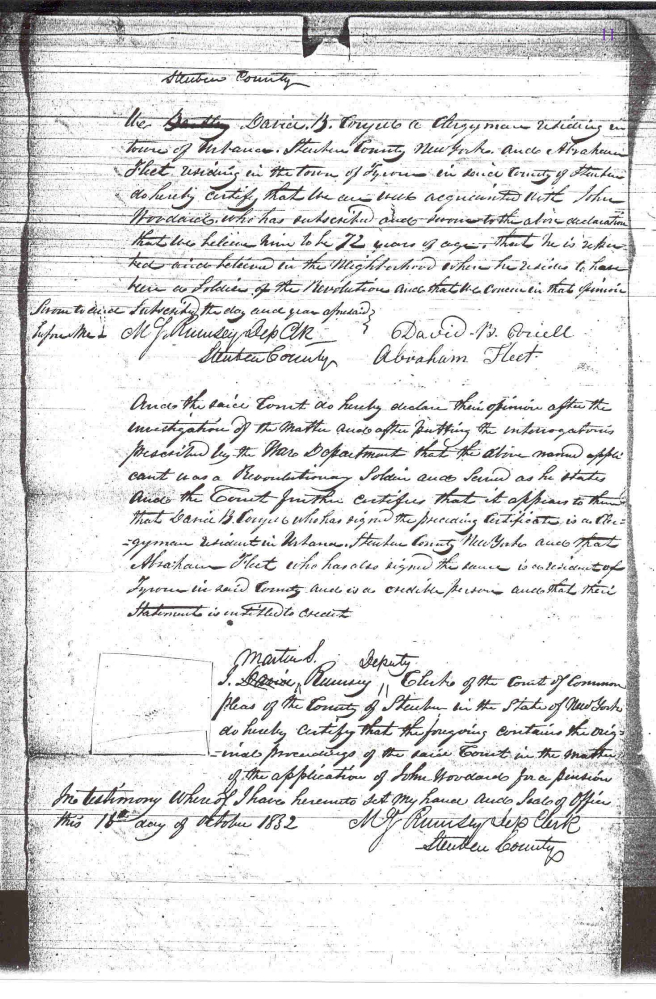 11
Steuben County
We David. B. a Clergyman residing in
town of Urbana. Steuben County New York. and Abraham
Fleet residing in the town of Tyrone in said County of Steuben
do hereby certify, that we are well acquainted with John
Woodard who has subscribed and sworn to the above declaration
that we believe him to be 72 years of age, that he is repu-
ted and believed in the Neighborhood where he resides to have
been a Soldier of the Revolution and that we concur in that opinion
Sworn to and Subscribed the day and year aforesaid
before me M J Rumsey Dep Clk David B.
Steuben County Abraham Fleet.
And the said Court do hereby declare their opinion after the
investigation of the matter and after putting the interrogatories
prescribed by the War Department that the above named appli
cant was a Revolutionary Soldier and Served as he states
And the Court further certifies that it appears to them
that David B. who has signed the preceding Certificate is a Cler=
=gyman resident in Urbana. Steuben County New York and that
Abraham Fleet who has also signed the same is a resident of
Tyrone in said County and is a credible person and that their
Statement is entitled to credit
Martin S. Deputy
I. Rumsey " Clerk of the Court of Common
pleas of the County of Steuben in the State of New York
do hereby certify that the foregoing contains the orig=
=inal proceedings of the said Court in the matter
of the application of John Woodard for a pension
In testimony Whereof I have hereunto set my hand and Seal of Office
this 15th day of October 1832 M J Rumsey Dep Clerk
Steuben County